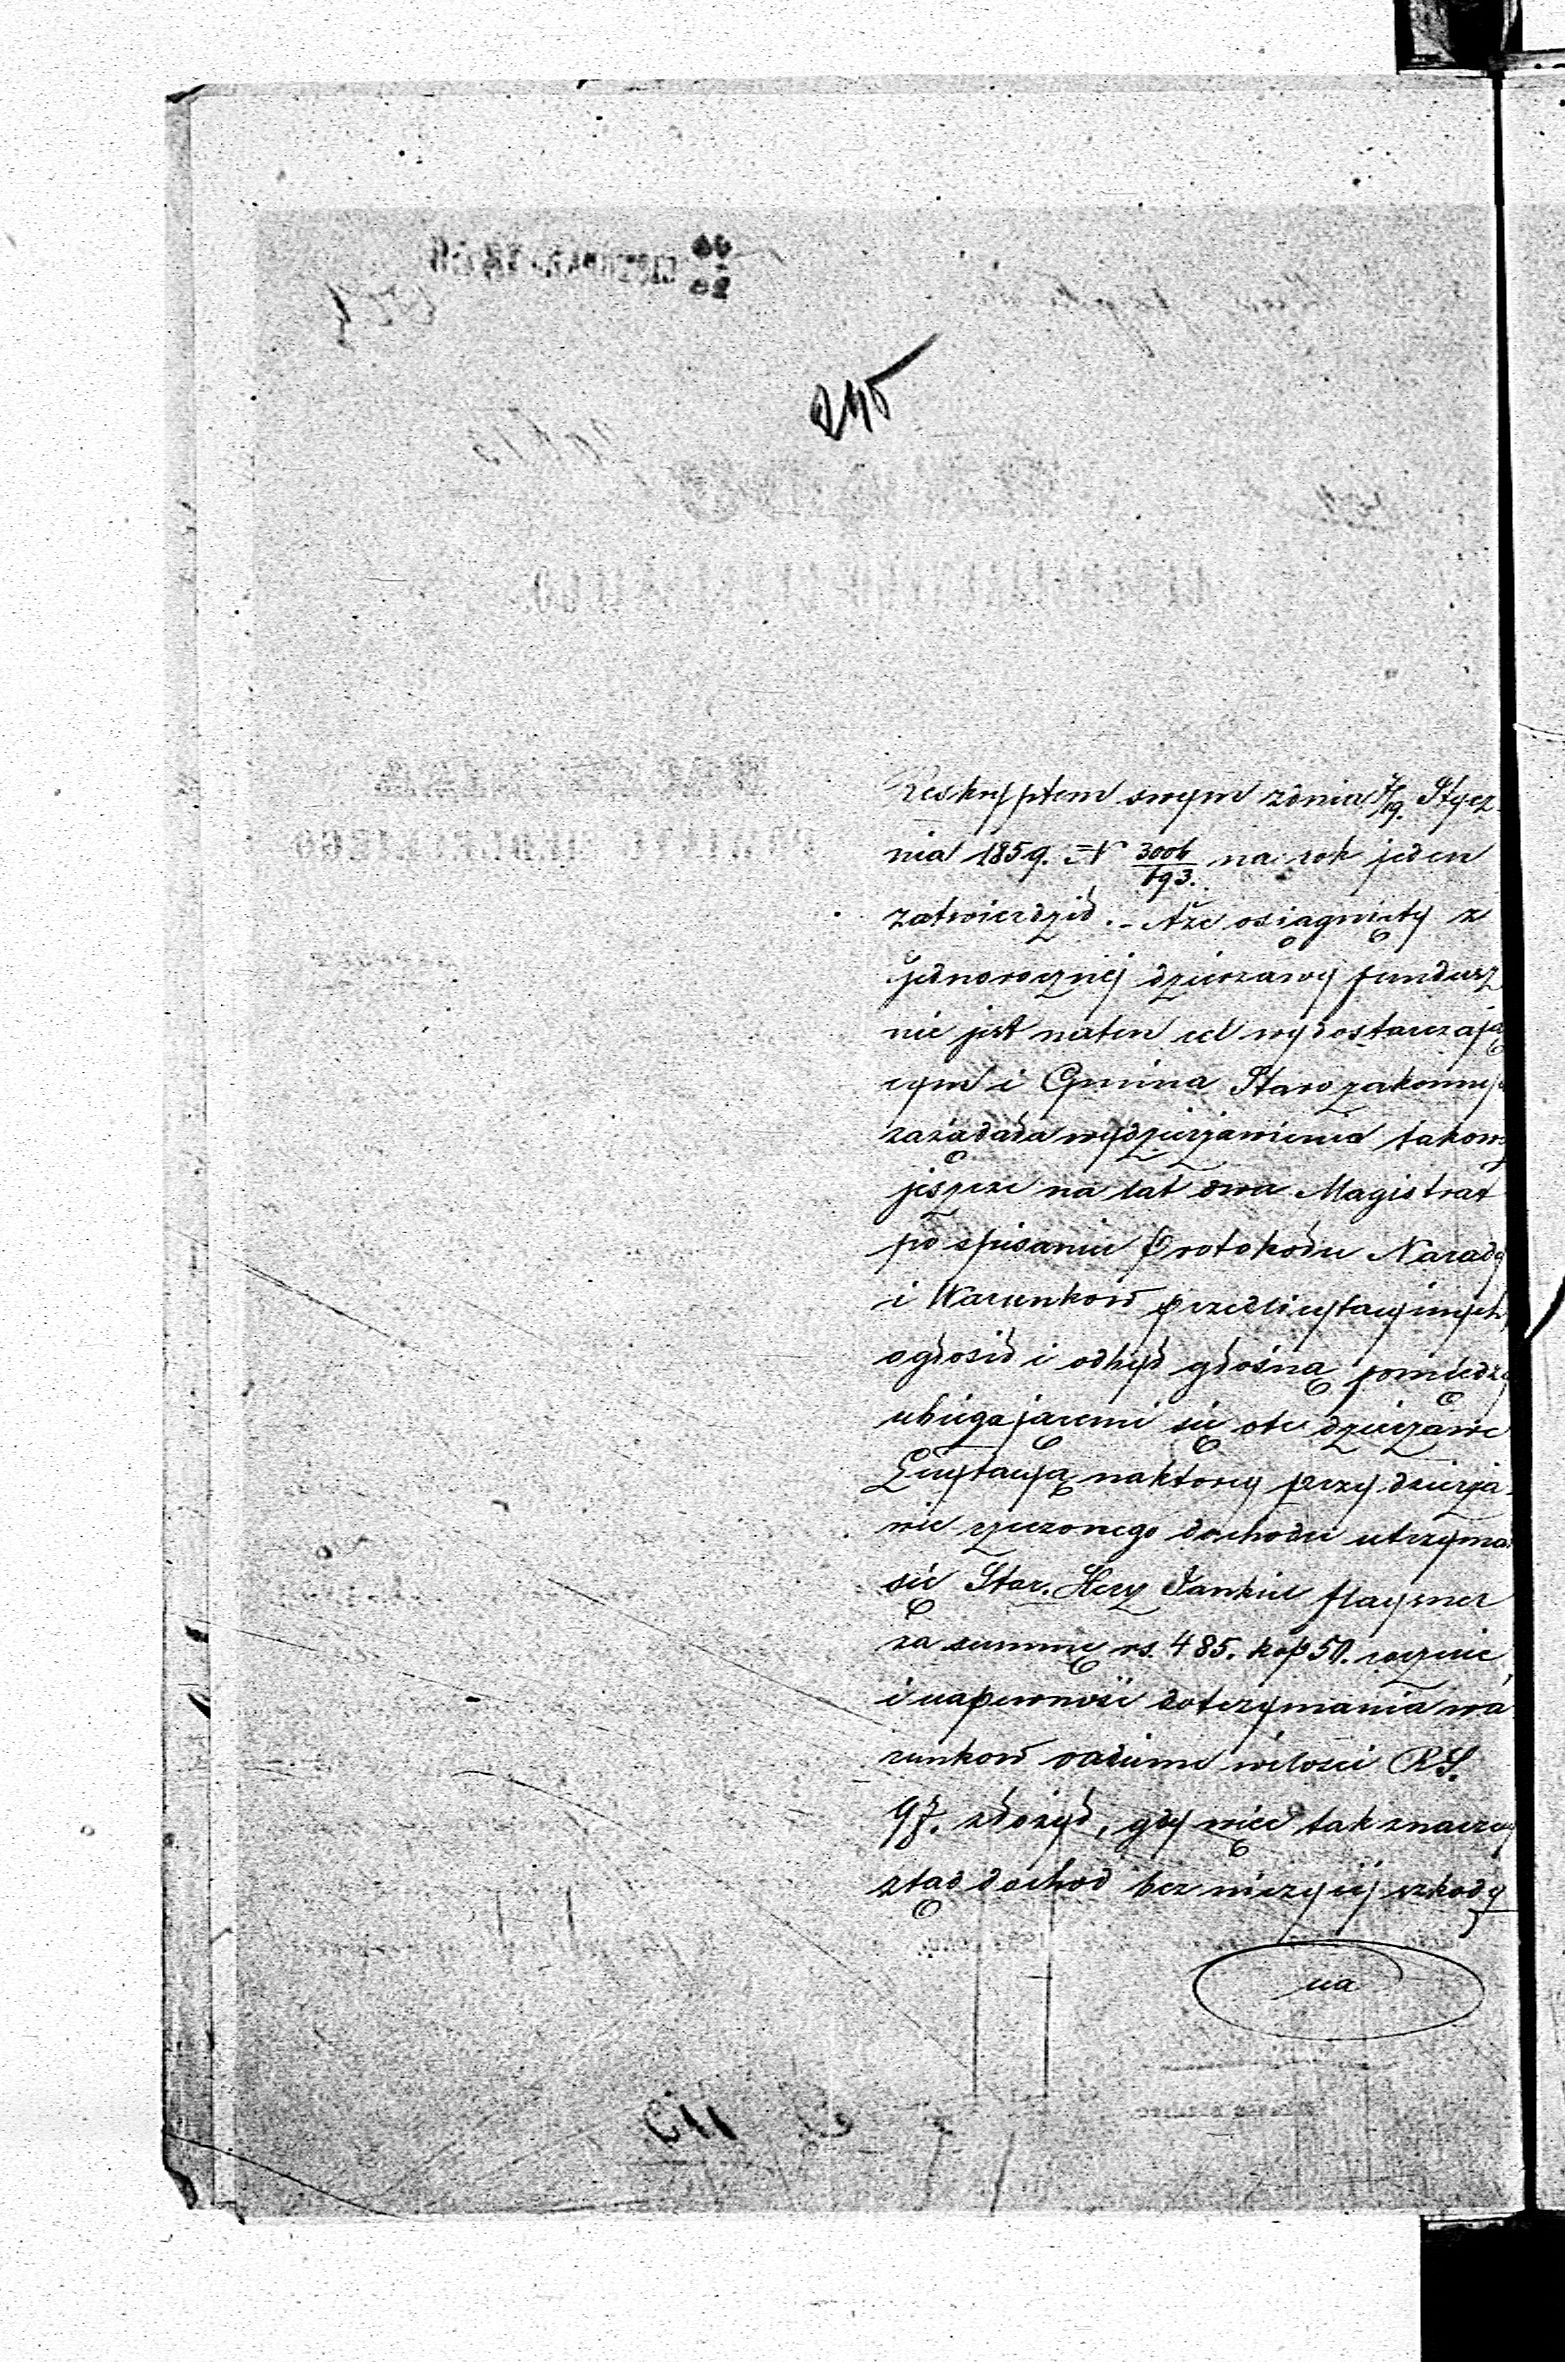 245
Reskryptem swym zdnia 7/19. Stycz
nia 1859. N 3006/193. na rok jeden
zatwierdził. - Aże osiągnięty z
jednoroczněj dzierzawy fundusz
nie jest naten cel wydostarczają
cym i Gmina Starozakonnych
zażądała wydzierzawienia takow
jeszcze na lat dwa Magistrat
po spisaniu Protokołu Narady
i Warunkow przedlicytacyinych
ogłosił i odbył głośną pomiędzy
ubiegającemi się otę dzierzawę
Licytacyją naktorey przy dzierża
wie rzeczonego dochodu utrzymał
się Star. Herz Jankiel
za summę rs. 485. kop 50. rocznie
i napewność dotrzymania wa
runkow vadium wilości RS.
97. złożył, gdy więc tak znaczny
ztąd dochod bez niczyiěj szkody
ua